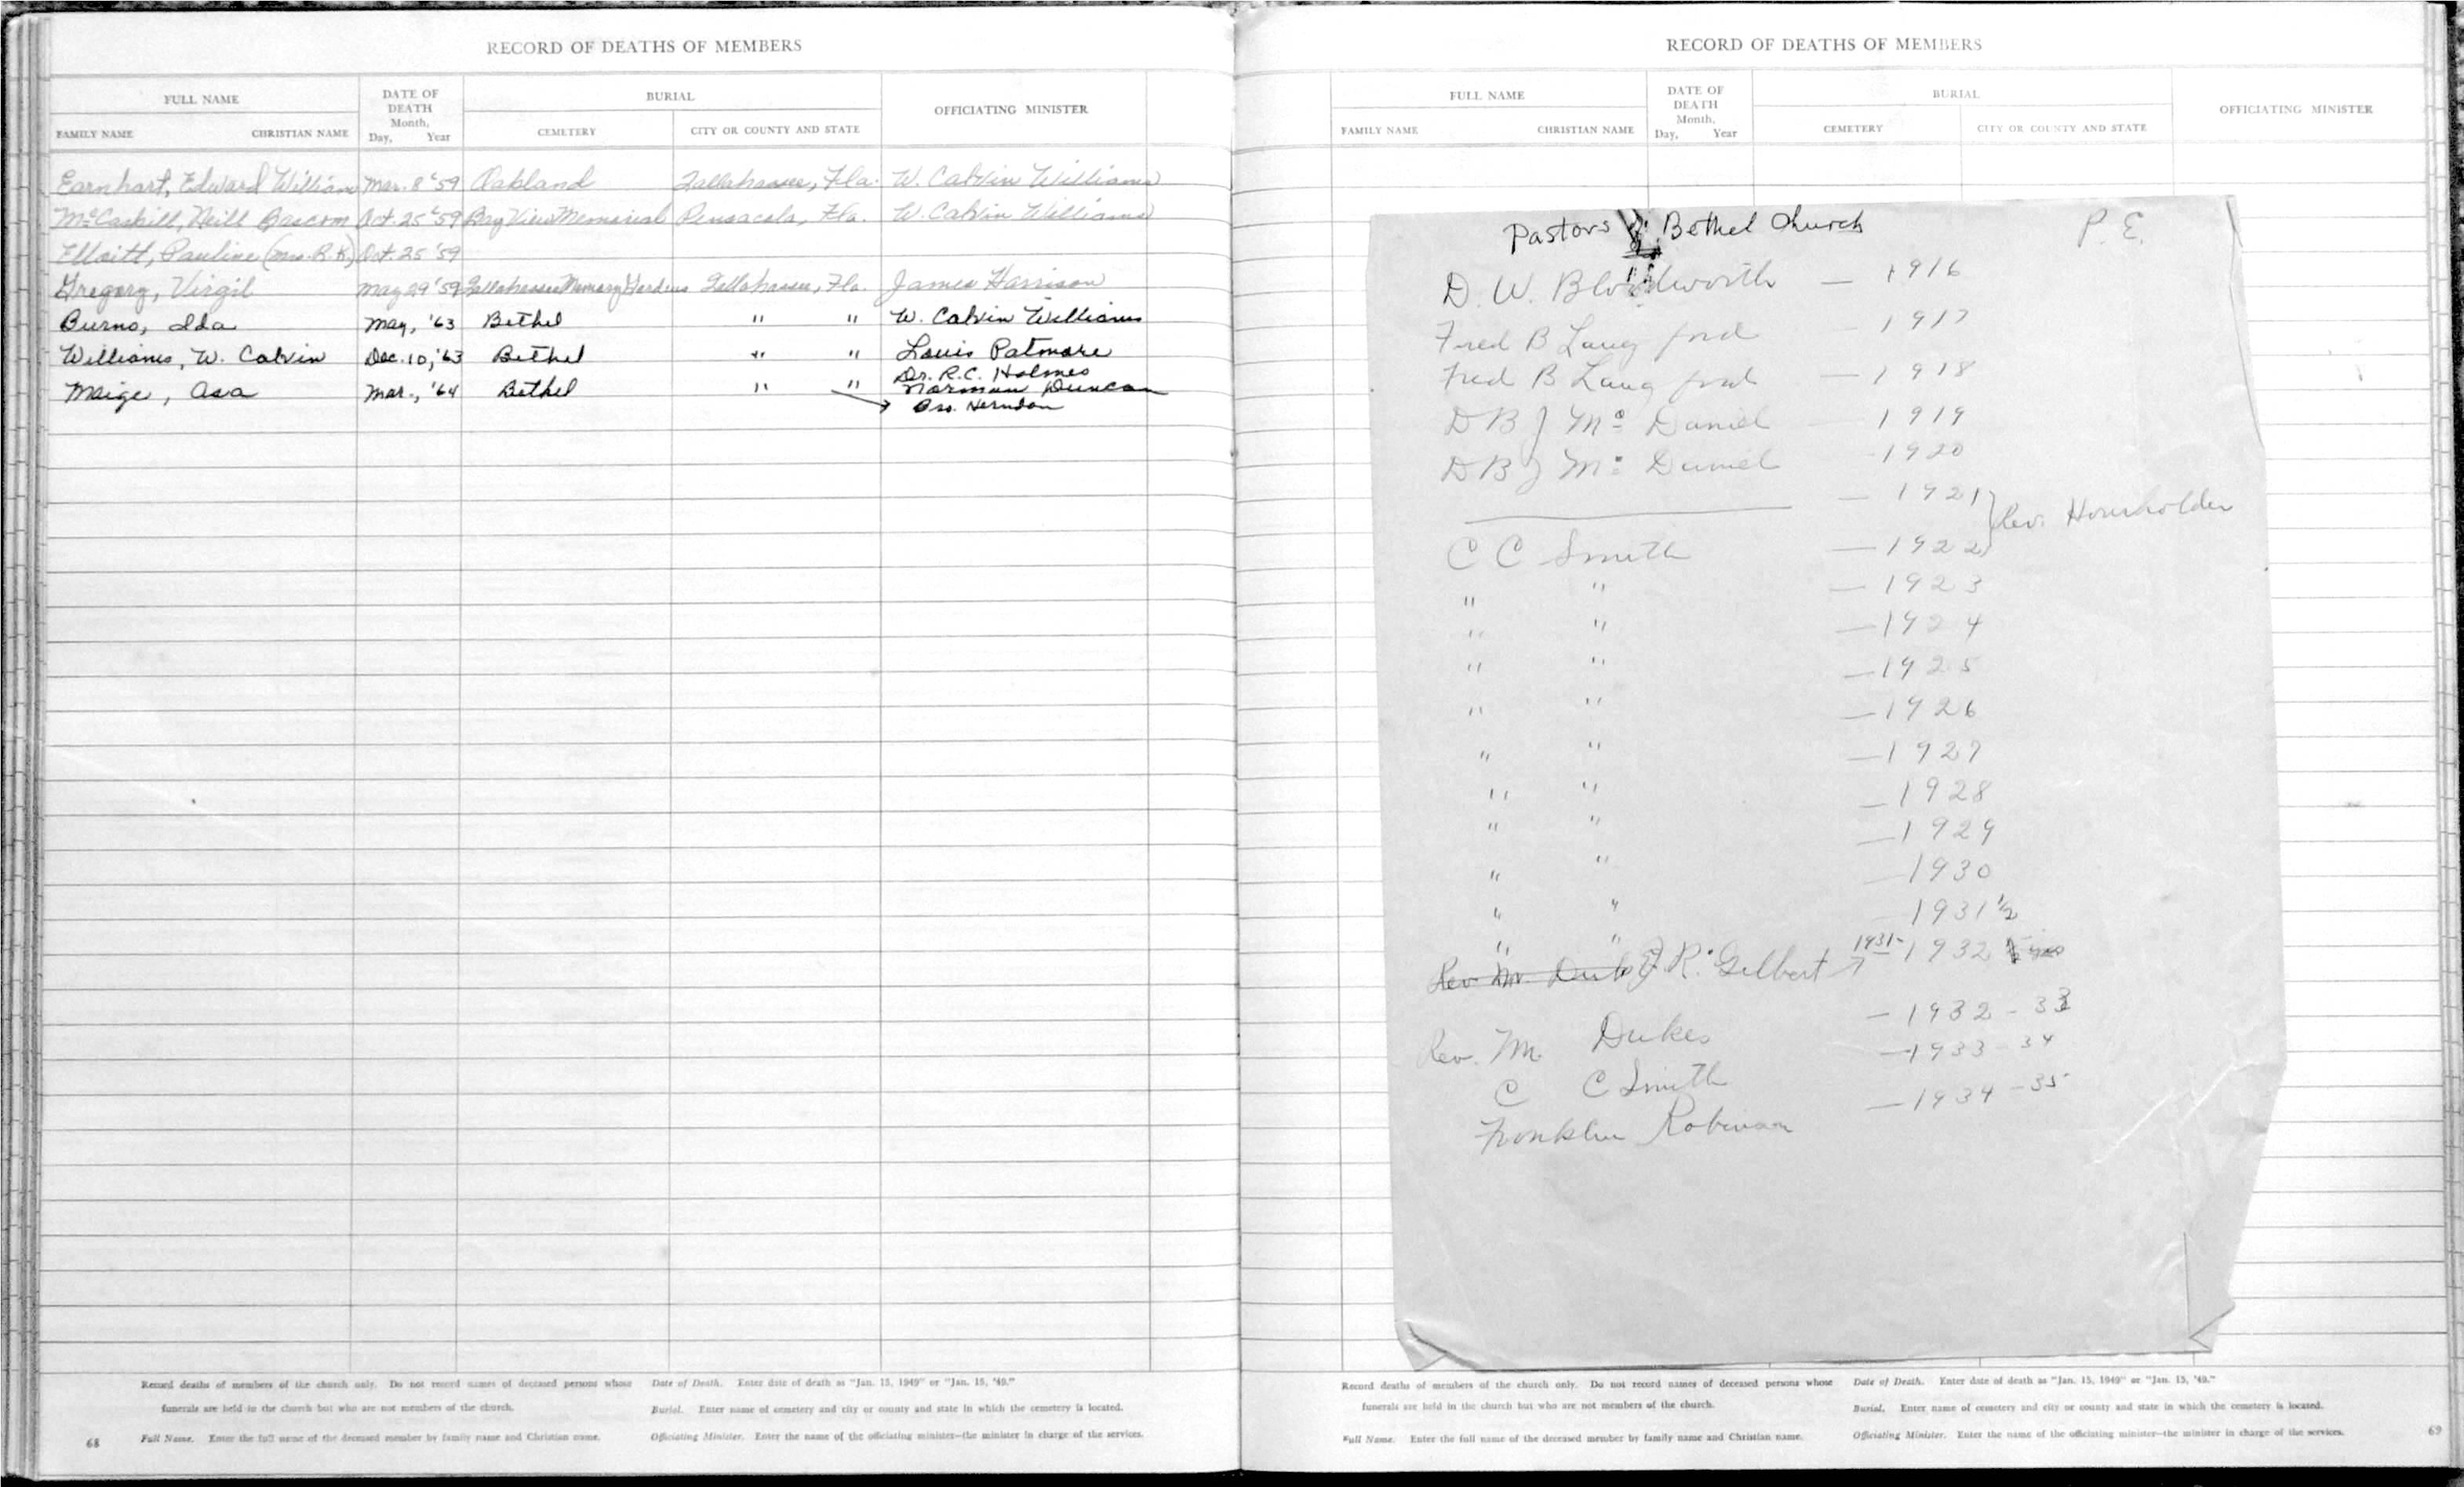 RECORD OF DEATHS OF MEMBERS
FULL NAME DATE OF DEATH Month, Day, Year BURIAL OFFICIATING MINISTER
FAMILY NAME CHRISTIAN NAME CEMETERY CITY OR COUNTY AND STATE
Earnhart, Edward William Mar. 8 '59 Oakland Tallahassee, Fla. W. Calvin Williams
McCaskill, Neill Bascom Oct. 25 '59 Bay View Memorial Pensacola, Fla. W. Calvin Williams
Elloitt, Pauline (Mrs. R.K.) Oct. 25 '59
Gregory, Virgil May 29 '59 Tallahassee Memory Gardens Tallahassee, Fla. James Harrison
Burns, Ida May, '63 Bethel " " W. Calvin Williams
Williams, W. Calvin Dec. 10, '63 Bethel " " Louis Patmore
Dr. R.C. Holmes
Maige, Asa Mar., '64 Bethel " " Norman Duncan
Herndon
Record deaths of members of the church only. Do not record names of deceased persons whose
funerals are held in the church but who are not members of the church.
Full Name. Enter the full name of the deceased member by family name and Christian name.
Date of Death. Enter date of death as "Jan. 15, 1949" or "Jan. 15, '49."
Burial. Enter name of cemetery and city or county and state in which the cemetery is located.
Officiating Minister. Enter the name of the officiating minister—the minister in charge of the services.
68
RECORD OF DEATHS OF MEMBERS
FULL NAME DATE OF DEATH Month, Day, Year BURIAL OFFICIATING MINISTER
FAMILY NAME CHRISTIAN NAME CEMETERY CITY OR COUNTY AND STATE
Pastors of Bethel Church P. E.
D. W. Bloodworth — 1916
Fred B Lang ford — 1917
Fred B Lang ford — 1918
D B J Mc Daniel — 1919
D B J Mc Daniel — 1920
— 1921 } Rev. Hourholder
C C Smith — 1922
" " — 1923
" " — 1924
" " — 1925
" " — 1926
" " — 1927
" " — 1928
" " — 1929
" " — 1930
" " — 1931 ½
" " 1931- 1932
Rev. Mr. J R. Gilbert
— 1932 - 33
Rev. M. Dukes — 1933 - 34
C C Smith — 1934 - 35
Franklin Robinson
Record deaths of members of the church only. Do not record names of deceased persons whose
funerals are held in the church but who are not members of the church.
Full Name. Enter the full name of the deceased member by family name and Christian name.
Date of Death. Enter date of death as "Jan. 15, 1949" or "Jan. 15, '49."
Burial. Enter name of cemetery and city or county and state in which the cemetery is located.
Officiating Minister. Enter the name of the officiating minister—the minister in charge of the services.
69